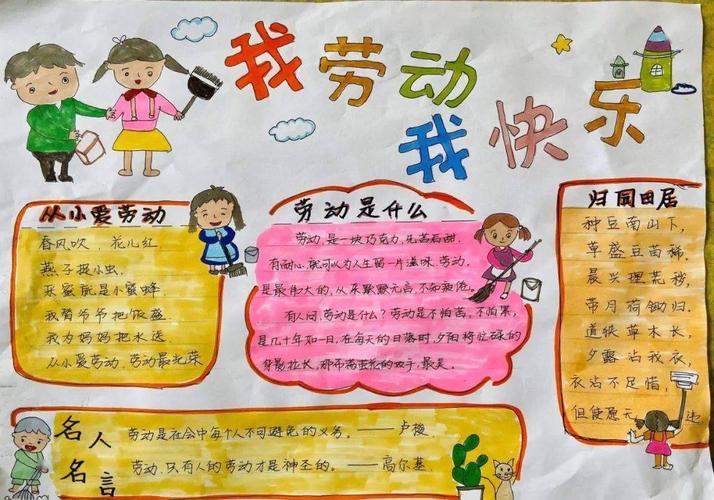 我劳动
我快乐
从小爱劳动
春风吹，花儿红
燕子捉小虫，
采蜜就是小蜜蜂
我帮爷爷把饭盛
我为妈妈把水送
从小爱劳动，劳动最光荣
劳动是什么
劳动，是一块巧克力，先苦后甜，
有耐心，就可以为人生留一片滋味，劳动，
是最伟大的，从来默默无言，不知疲倦。
有人问，劳动是什么？劳动是不怕苦，不怕累，
是几十年如一日，在每天的日落时，夕阳将忙碌的
身影拉长，那布满茧花的双手，最美。
归园田居
种豆南山下，
草盛豆苗稀。
晨兴理荒秽，
带月荷锄归。
道狭草木长，
夕露沾我衣，
衣沾不足惜，
但使愿无违
名人
名言
劳动是社会中每个人不可避免的义务。——卢梭
劳动，只有人的劳动才是神圣的。——高尔基